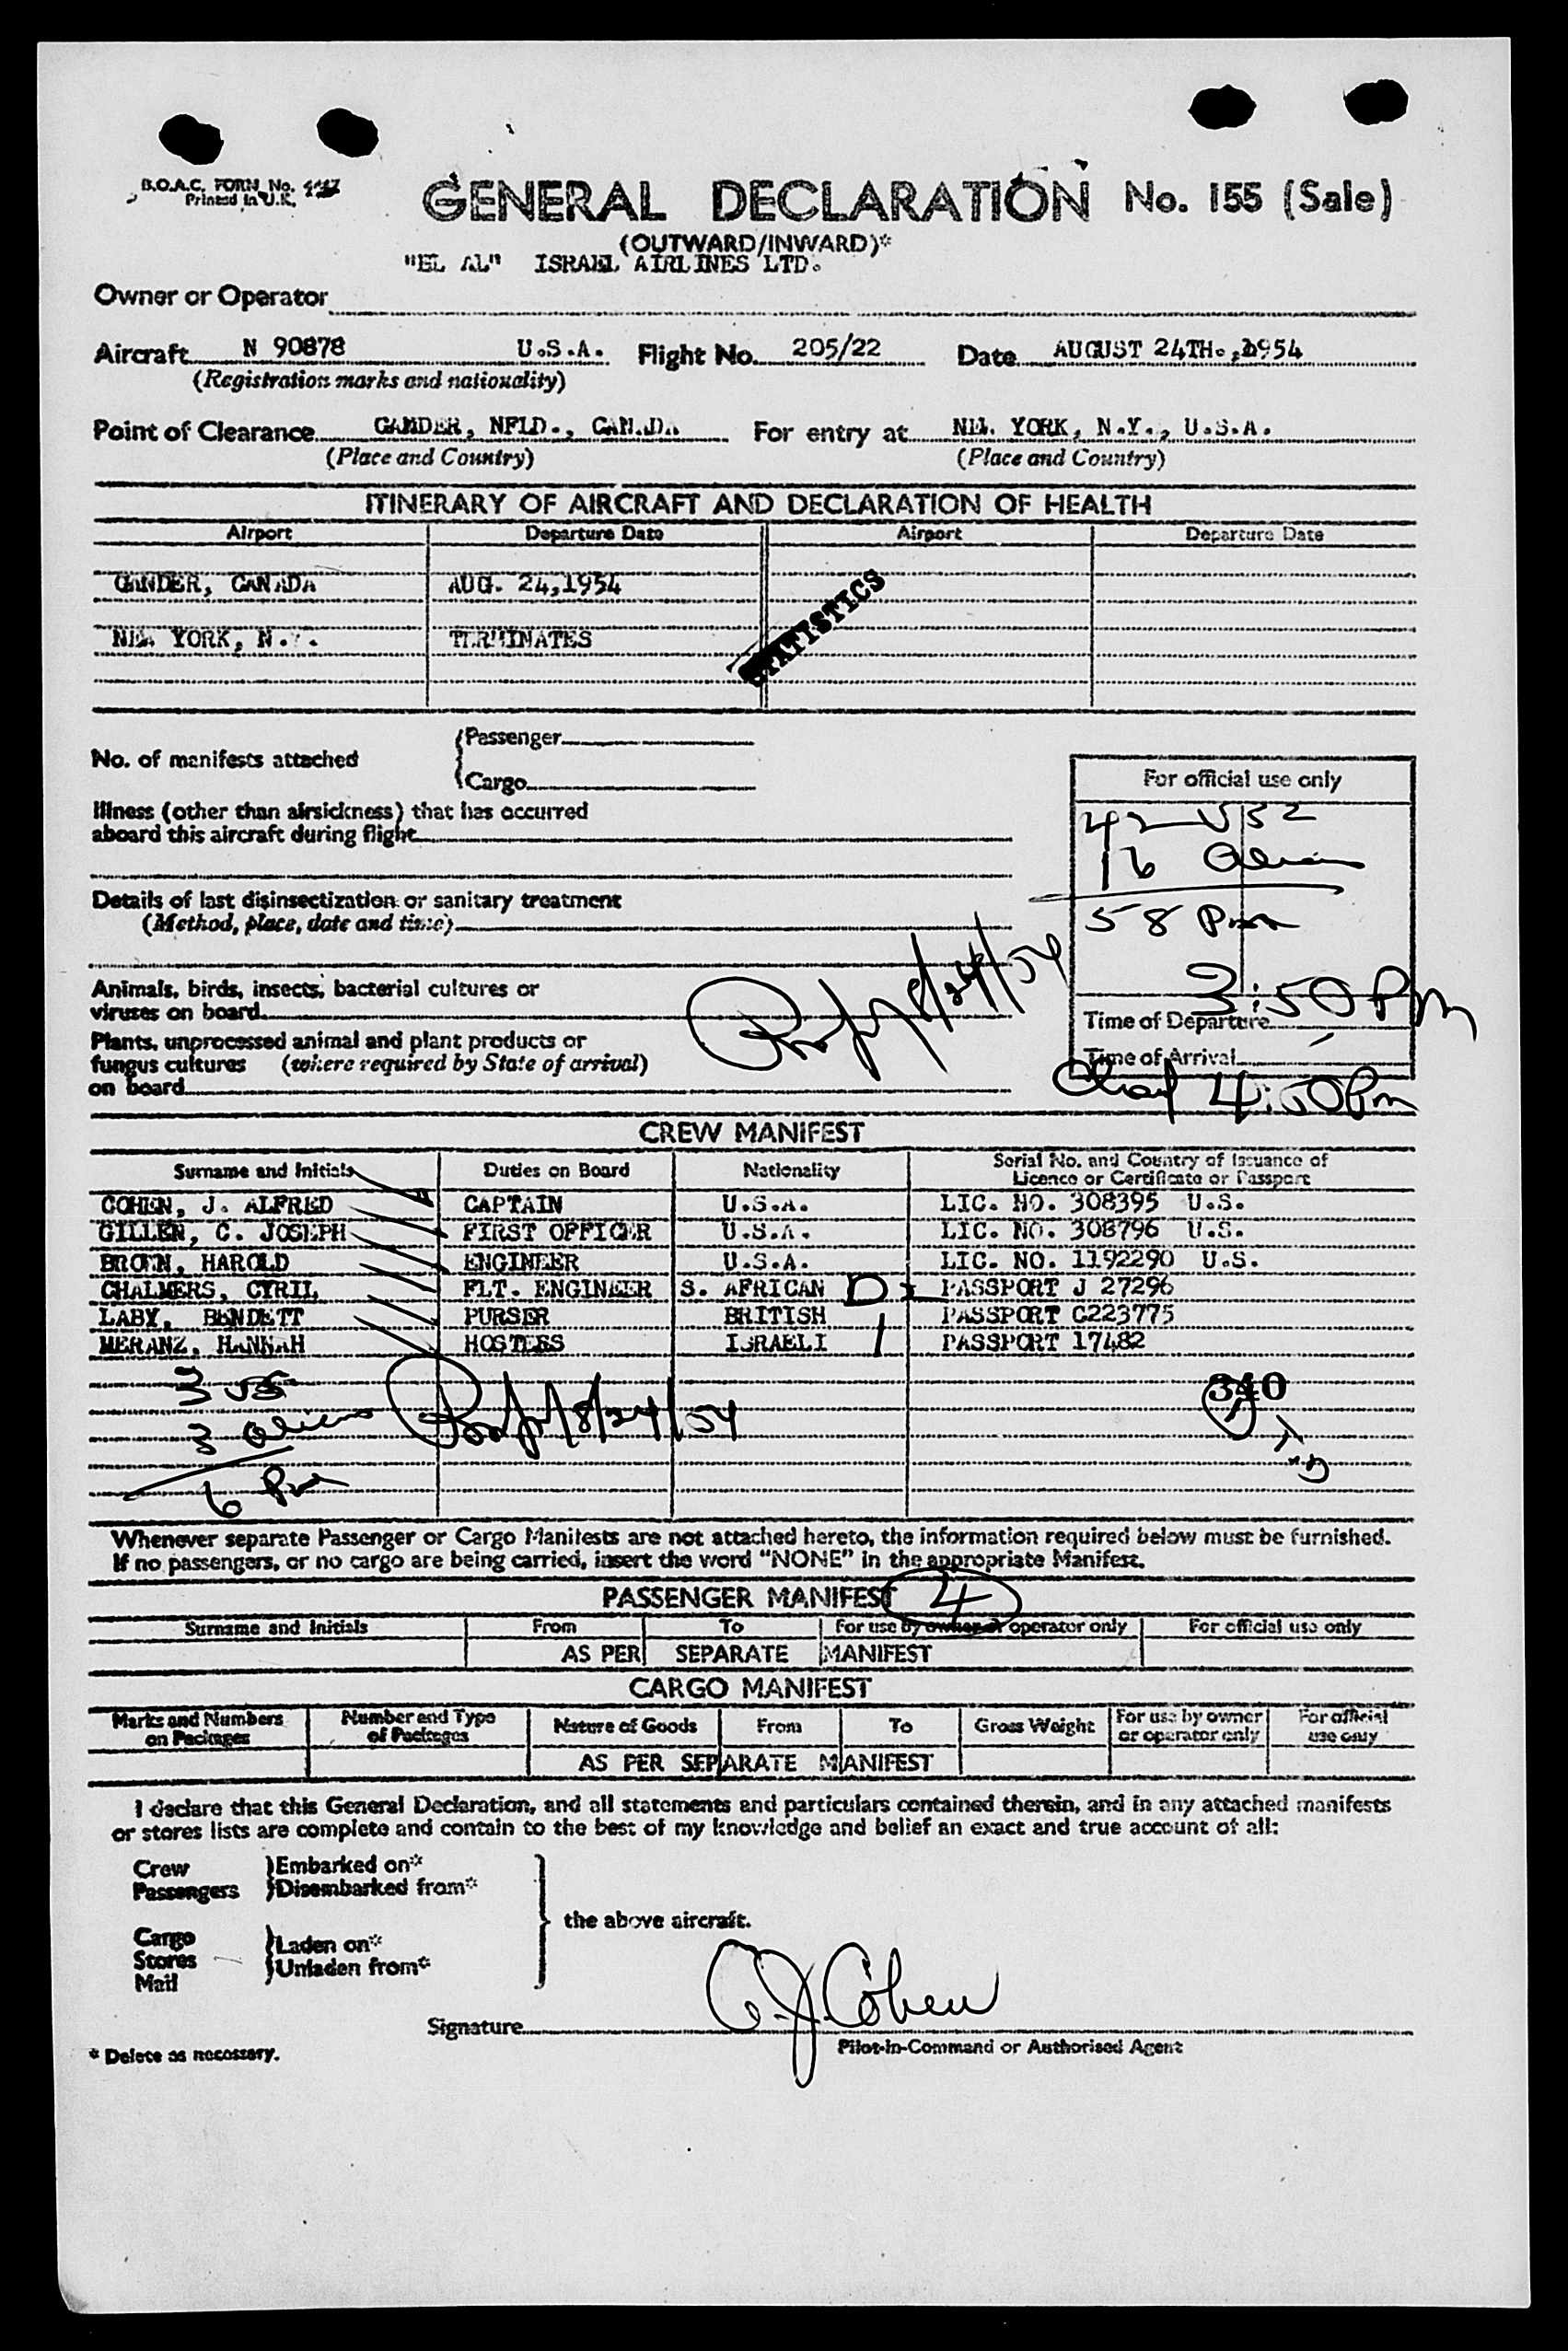 B.O.A.C. FORM No.
Printed in U.K.
GENERAL DECLARATION No. 155 (Sale)
(OUTWARD/INWARD)*
"EL AL" ISRAEL AIRLINES LTD.
Owner or Operator
Aircraft N 90878 U.S.A. Flight No. 205/22 Date AUGUST 24TH.,1954
(Registration marks and nationality)
Point of Clearance GANDER, NFLD., CANADA For entry at NEW YORK, N.Y., U.S.A.
(Place and Country) (Place and Country)
ITINERARY OF AIRCRAFT AND DECLARATION OF HEALTH
Airport Departure Date Airport Departure Date
GANDER, CANADA AUG. 24,1954
STATISTICS
NEW YORK, N.Y. TERMINATES
No. of manifests attached
Passenger
Cargo
For official use only
Illness (other than airsickness) that has occurred
aboard this aircraft during flight
42 US2
16 Aliens
58 Pax
Details of last disinsectization or sanitary treatment
(Method, place, date and time)
8/24/54
Animals, birds, insects, bacterial cultures or
viruses on board
3:50 Pm
Time of Departure
Plants, unprocessed animal and plant products or
fungus cultures (where required by State of arrival)
on board
Time of Arrival
4:50 Pm
CREW MANIFEST
Surname and Initials Duties on Board Nationality Serial No. and Country of Issuance of
Licence or Certificate or Passport
COHEN, J. ALFRED CAPTAIN U.S.A. LIC. NO. 308395 U.S.
GILLEN, C. JOSEPH FIRST OFFICER U.S.A. LIC. NO. 308796 U.S.
BROWN, HAROLD ENGINEER U.S.A. LIC. NO. 1192290 U.S.
CHALMERS, CYRIL FLT. ENGINEER S. AFRICAN D PASSPORT J 27296
LABY, BENDETT PURSER BRITISH PASSPORT C223775
MERANZ, HANNAH HOSTESS ISRAELI PASSPORT 17482
3 US
340
3 Aliens 8/24/54
6
Whenever separate Passenger or Cargo Manifests are not attached hereto, the information required below must be furnished.
If no passengers, or no cargo are being carried, insert the word "NONE" in the appropriate Manifest.
PASSENGER MANIFEST 4
Surname and Initials From To For use by owner or operator only For official use only
AS PER SEPARATE MANIFEST
CARGO MANIFEST
Marks and Numbers on Packages Number and Type of Packages Nature of Goods From To Gross Weight For use by owner or operator only For official use only
AS PER SEPARATE MANIFEST
I declare that this General Declaration, and all statements and particulars contained therein, and in any attached manifests
or stores lists are complete and contain to the best of my knowledge and belief an exact and true account of all:
Crew Embarked on*
Passengers Disembarked from*
the above aircraft.
Cargo
Stores
Mail
Laden on*
Unladen from*
Signature A. J. Cohen
Pilot-in-Command or Authorised Agent
* Delete as necessary.